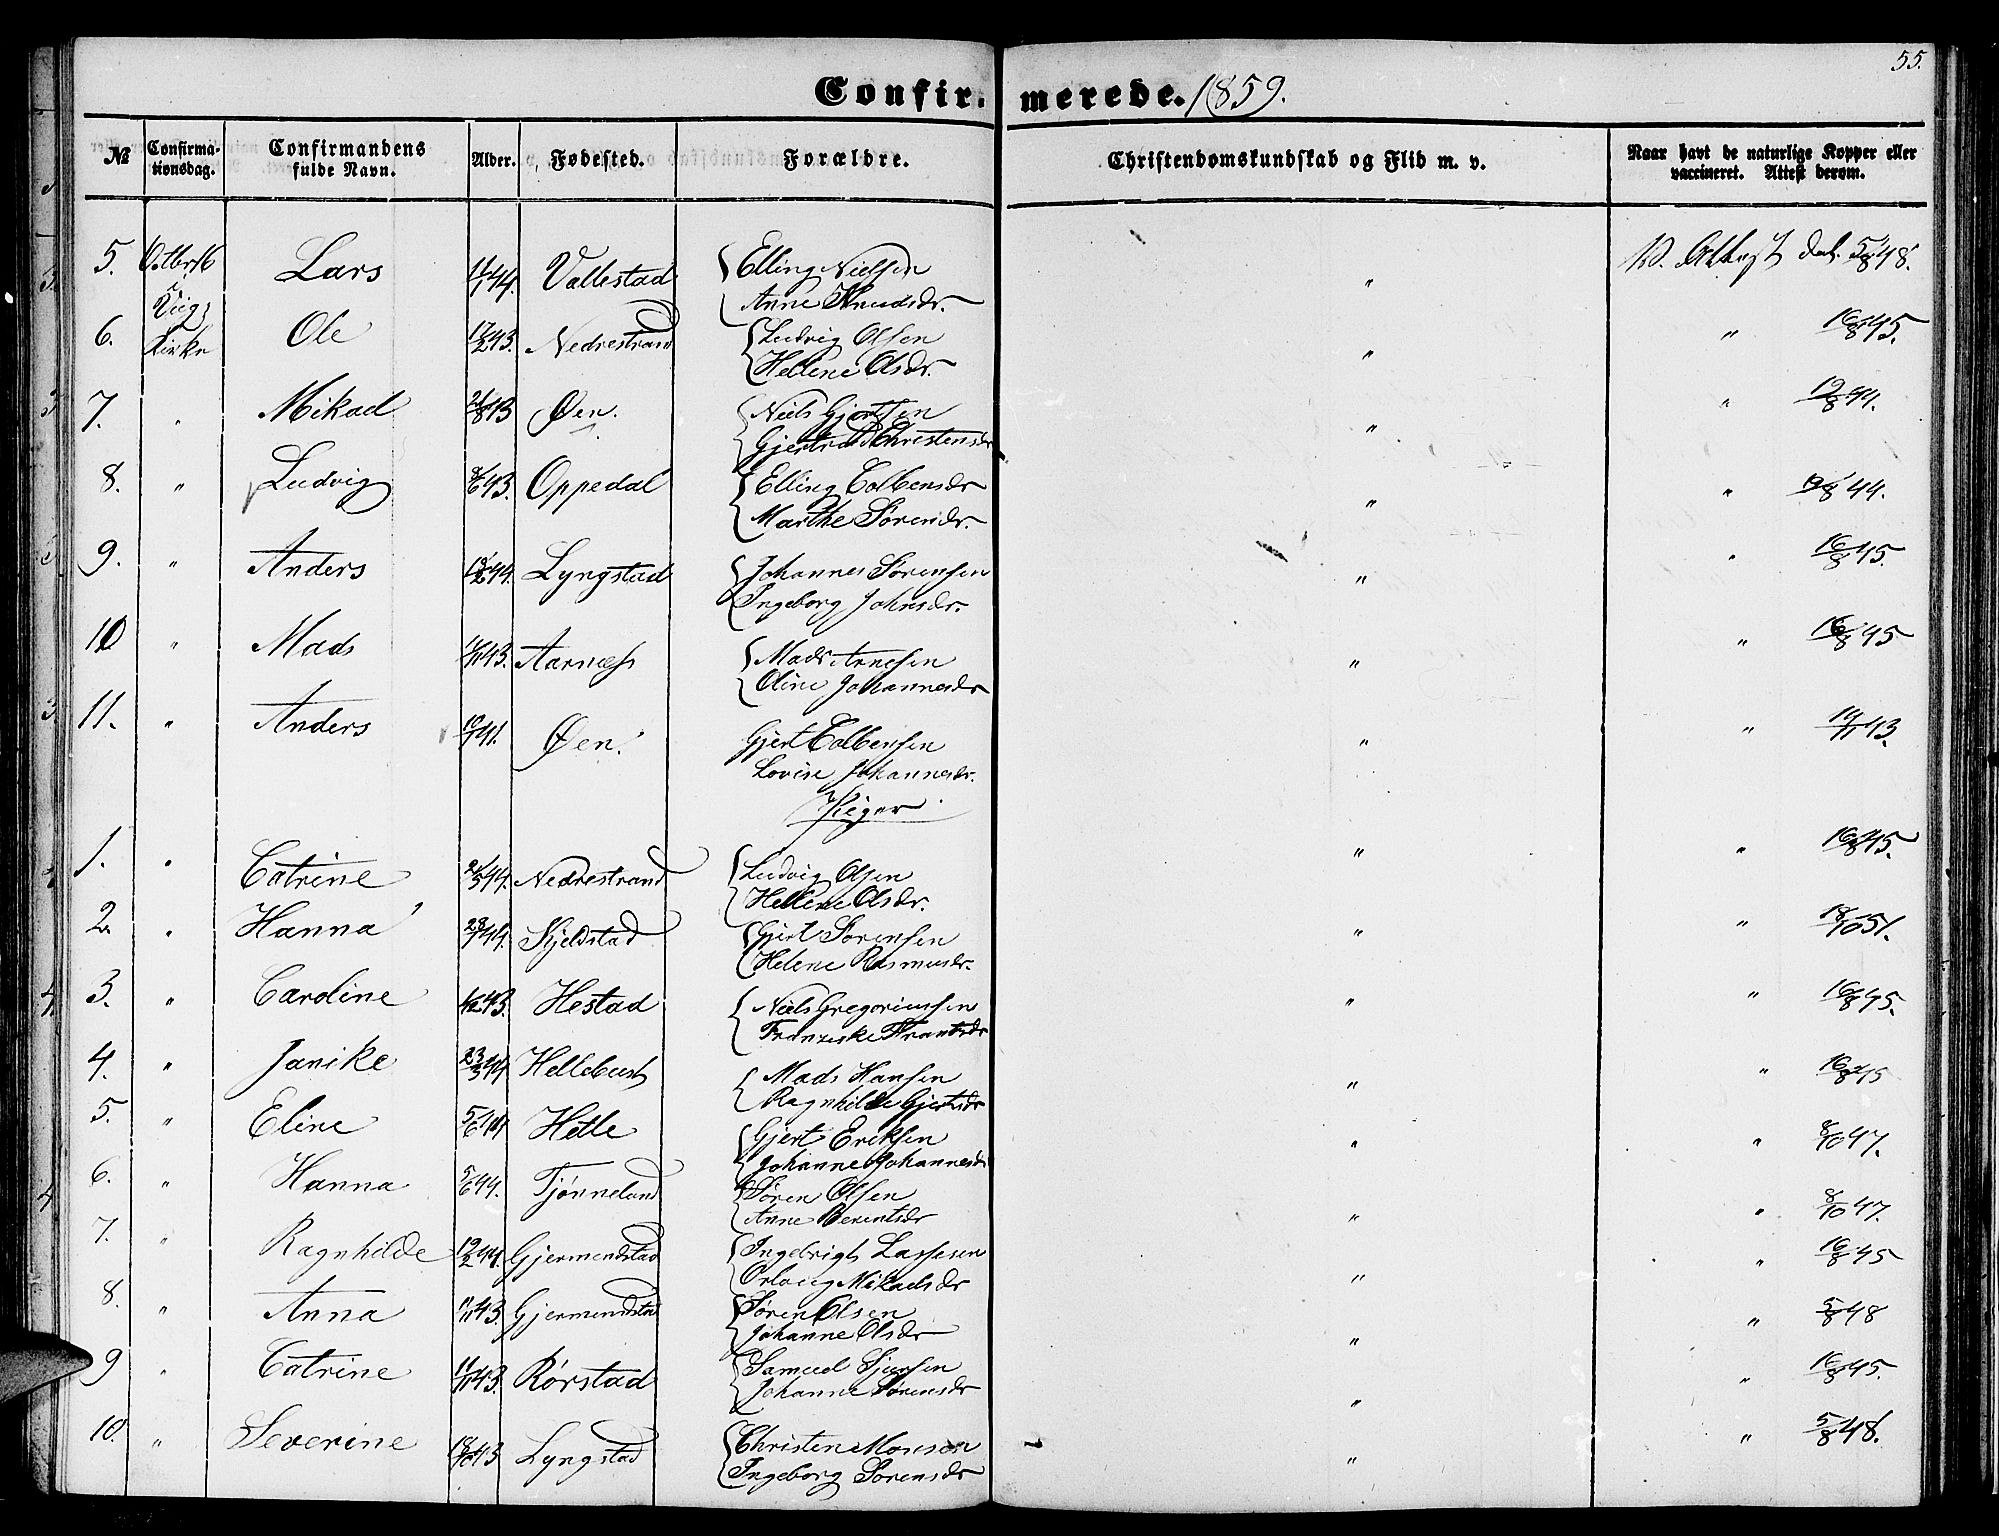 55.
Confir- merede. 1859.
№ Confirma-tionsdag. Confirmandens fulde Navn. Alder. Fødested. Forældre. Christendomskundskab og Flid m. v. Naar havt de naturlige Kopper eller vaccineret. Attest derom.
5. Octbr 16 Lars 44. Vallestad Elling Nielsen " V. Attest dat. 5/8 48.
Anne Knudsdr.
Viigs
6. Kirke Ole 17/2 43. Nedrestrand Ludvig Olsen " " 16/8 45.
Hellene Olsdr.
7. " Mikael 21/8 43 Øen. Niels Gjertsen " " 12/8 44.
Gjertrud Christensdr
8. " Ludvig 8/6 43. Oppedal Elling Colbensdr " " 12/8 44.
Marthe Sørensdr.
9. " Anders 44. Lyngstad Johannes Sørensen " " 16/8 45.
Ingeborg Johnsdr.
10 " Mads 43. Aarnæss Mads Arnesen " " 16/8 45
Oline Johannesdr
11. " Anders 10/7 41. Øen. Gjert Colbensen " " 14/11 43.
Lovise Johannesdr.
Piger
1. " Catrine 21/5 44. Nedrestrand Ludvig Olsen " " 16/8 45.
Hellene Olsdr.
2. " Hanna 28/7 44. Skjeldstad Gjert Sørensen " " 18/10 51.
Helene Rasmusdr.
3. " Caroline 43. Hestad Niels Gregoriussen " " 16/8 45.
Franziske Frantsdr
4. " Janike 23/3 44 Hellebust Mads Hansen " " 16/8 45
Ragnhilde Gjertsdr
5. " Eline 5/6 44 Helle Gjert Eriksen " " 8/10 47.
Johanne Johannesdr
6. " Hanna 5/6 44. Tjønneland Søren Olsen " " 8/10 47.
Anne Berentsdr
7. " Ragnhilde 12/2 44. Gjermendstad Ingebrigt Lassesen " " 16/8 45
Orloug Mikaelsdr
8. " Anna 43. Gjermendstad Søren Olsen " " 5/8 48
Johanne Olsdr
9 " Catrine 11/11 43. Rørstad Samuel Sjursen " " 16/8 45.
Johanne Sørensdr
10. " Severine 18/10 43 Lyngstad Christen Monsen " " 5/8 48.
Ingeborg Sørensdr